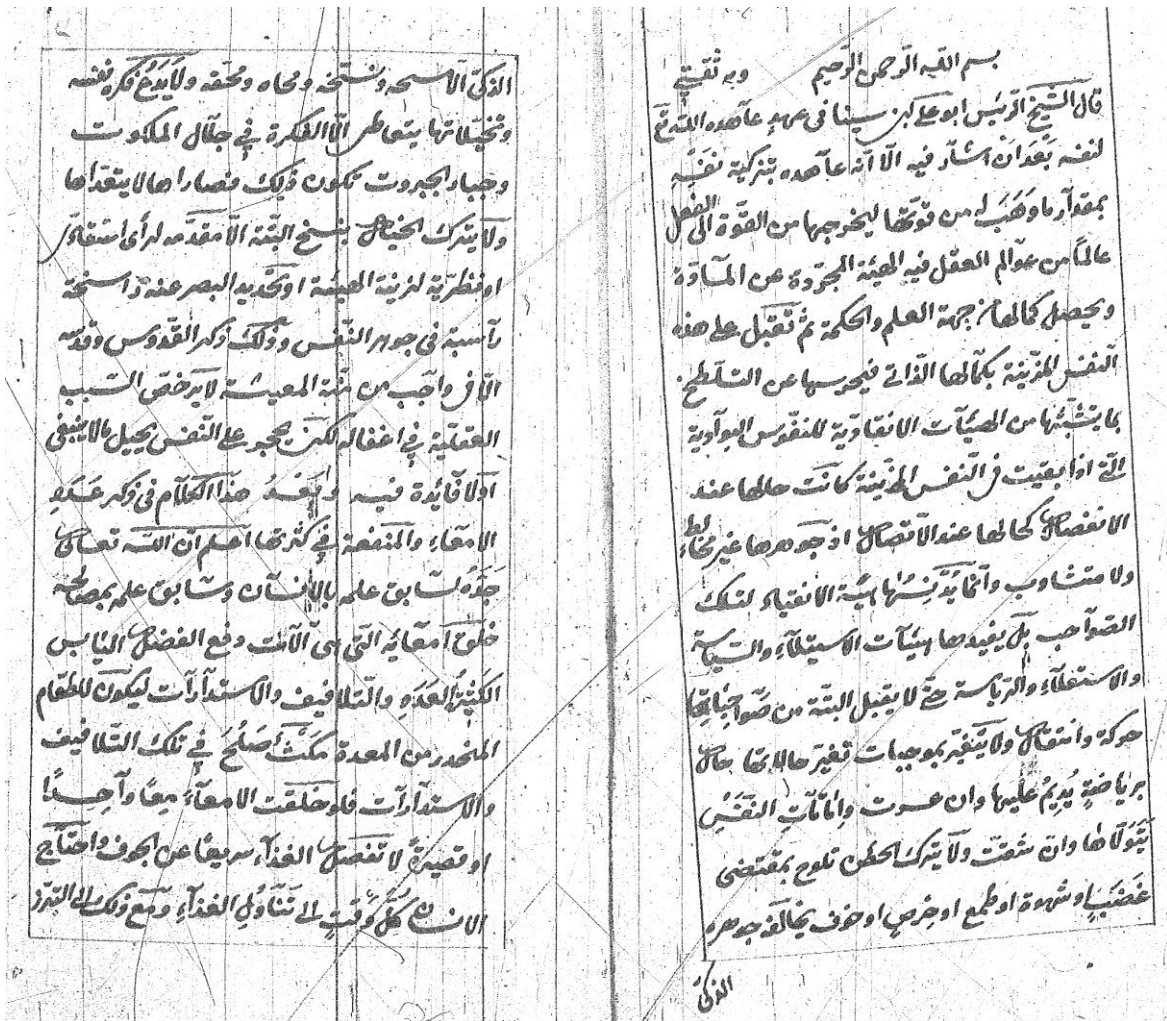 بسم الله الرحمن الرحيم وبه ثقتي
قال الشيخ الرئيس ابو على بن سينا فى عهد عاهده
لنفسه بعد ان اشار فيه الا انه عاهده بتزكية نفسه
بمقدار ما وهب له من قوتها ليخرجها من القوة الى الفعل
عالما من عوالم العقل فيه الهيئة المجردة عن المادة
ويحصل كمالها من جهة العلم والحكمة ثم تقبل على هذه
النفس المزينة بكمالها الذاتى فيحرسها عن التلطخ
بما يتشبثها من الهيئات الانقيادية للنفوس البوادية
التى اذا بقيت فى النفس المزينة كانت حالها عند
الانفصال كحالها عند الاتصال اذ جوهرها غير مخالط
ولا متشاوب وانما يدنسها هيئة الانقياد لتلك
الصواحب بل يفيدها هيئات الاستيلاء والسياسة
والاستعلاء والرياسة حتى لا يقبل البتة من صواحباتها
حركة وانتقال ولا يتغير بموجبات تغير حالاتها حال
برياضة يديم عليها وان عسرت وامانات النفس
يتولاها وان شقت ولا يترك الخطن تلوح بمقتضى
غضب او شهوة او طمع او حرص او خوف يخالف جوهره
الذكى
الذكى الا سحه ونسخه ومحاه ومحقه ولا يدع فكره نفسه
وتخيلاتها يتعاطى الا الفكرة فى جلال الملكوت
وجباد الجبروت تكون ذلك قصاراها لا يتعداها
ولا يترك الخيال يسنخ البتة الا مقدمه لرأى
او نظرية لزينة الهيئة او تحديد البصر عنه راسخة
راسبة فى جوهر النفس وذلك ذكر القدوس وقدسه
الا فى واجب من مئة المعيشة لا يرخص السبب
العقلية فى اغفاله لكن يحجر على النفس يحيل مالا ينبغى
او لا فائدة فيه هذا الكلام فى ذكر عدد
الامعاء والمنفعة فى كثرتها اعلم ان الله تعالى
جده لسابق علمه بالانسان وسابق علمه بمصالحه
خلق امعائه التى هى آلات دفع الفضل اليابس
الكثيرة العدد والتلافيف والاستدارات ليكون للطعام
المنحدر من المعدة مكث اصلح فى تلك التلافيف
والاستدارات فلو خلقت الامعاء معا واحدا
او قصيرة لا تفصل الغذاء سريعا عن الجوف واحتاج
الانسان كل وقت الى تناول الغذاء ومع ذلك الى التبرز